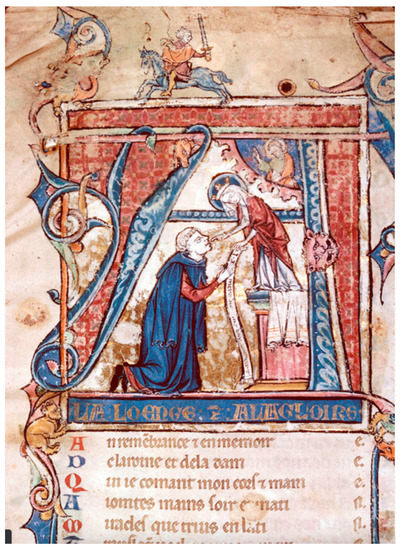 LA LOENGE ⁊ ALA GLOIRE
A n remēbrance ⁊ en memoir e.
D elaroine et dela dam e.
Q ui ie comant mon cors ⁊ mam e.
A iointes mains soir e mati n.
M iracles que truis en lati n.